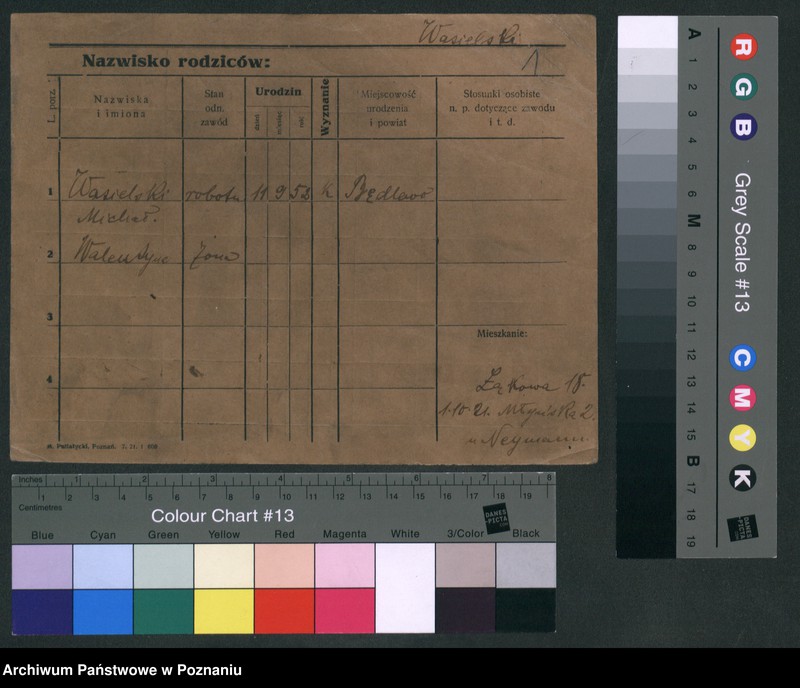 Wasielski
1
Nazwisko rodziców:
L. porz.
Nazwiska
i imiona
Stan
odn.
zawód
Urodzin
dzień
miesiąc
rok
Wyznanie
Miejscowość
urodzenia
i powiat
Stosunki osobiste
n. p. dotyczące zawodu
i t. d.
1 Wasielski robotn 11 9 53 k Będlewo
Michał.
2 Walentyna żona
3
Mieszkanie:
4
Łąkowa 18.
1.10.21. Młyńska 2.
u Neymann.
m. Putiatycki, Poznań.
A
1
2
3
4
5
6
M
8
9
10
11
12
13
14
15
B
17
18
19
R
G
B
Grey Scale #13
C
M
Y
K
DANES
-PICTA
.COM
Inches 1 2 3 4 5 6 7 8
1 2 3 4 5 6 7 8 9 10 11 12 13 14 15 16 17 18 19
Centimetres
Colour Chart #13
DANES
-PICTA
.COM
Blue Cyan Green Yellow Red Magenta White 3/Color Black
Archiwum Państwowe w Poznaniu